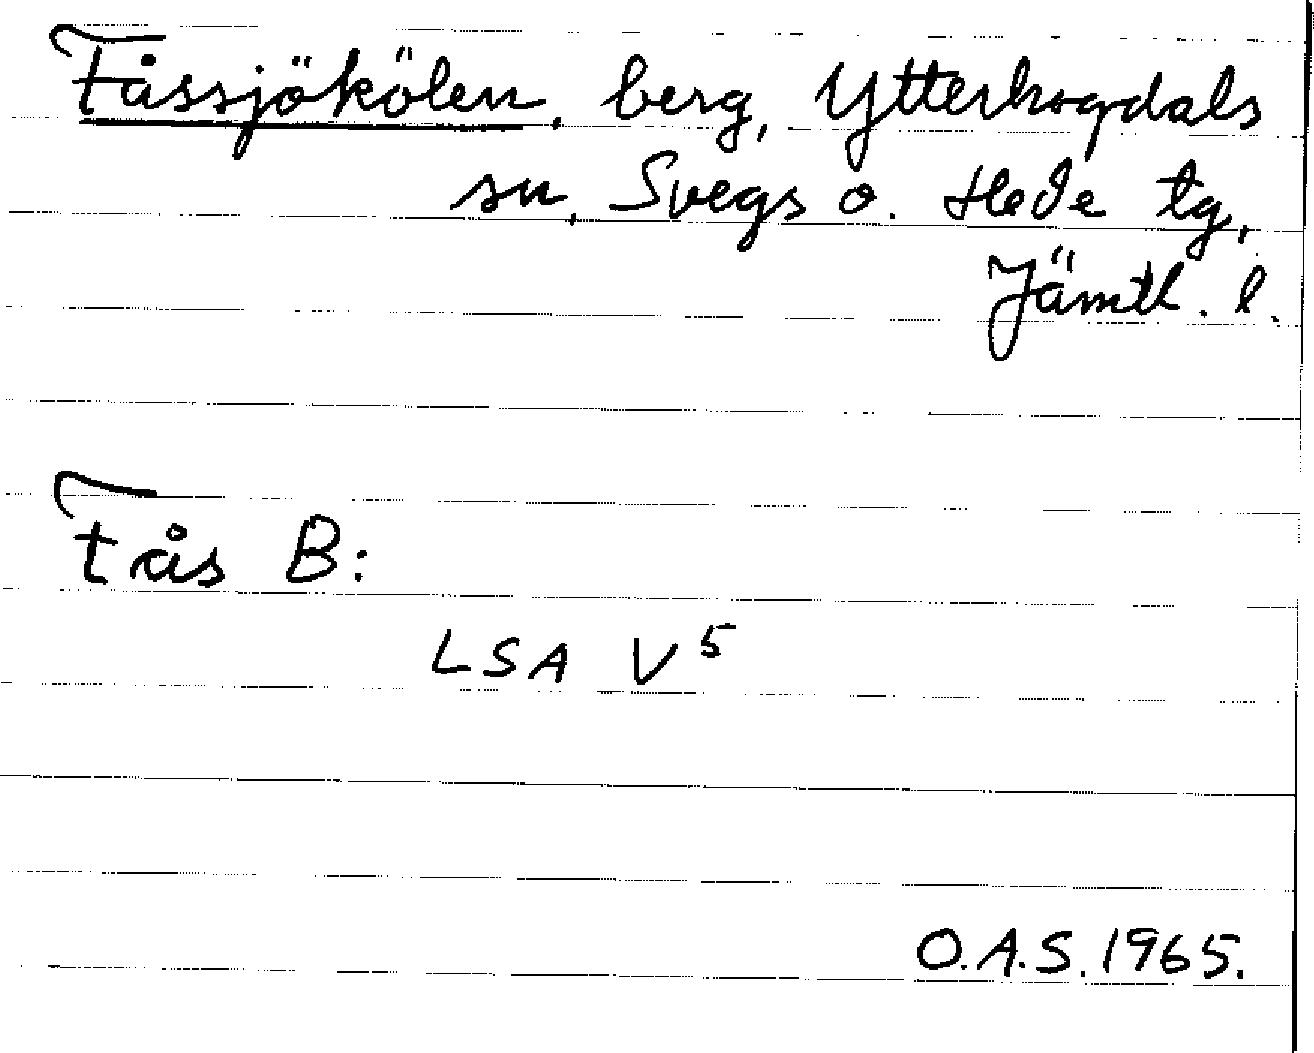 Fåssjökölen, berg, Ytterhogdals
sn, Svegs o. Hede tg,
Jämtl. l.
Fås B:
LSA V⁵
O.A.S. 1965.